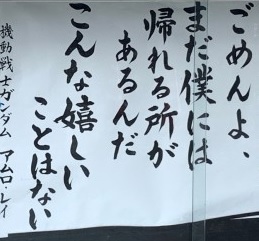 ごめんよ、
まだ僕には
帰れる所が
あるんだ
こんな嬉しい
ことはない
機動戦士ガンダム アムロ・レイ